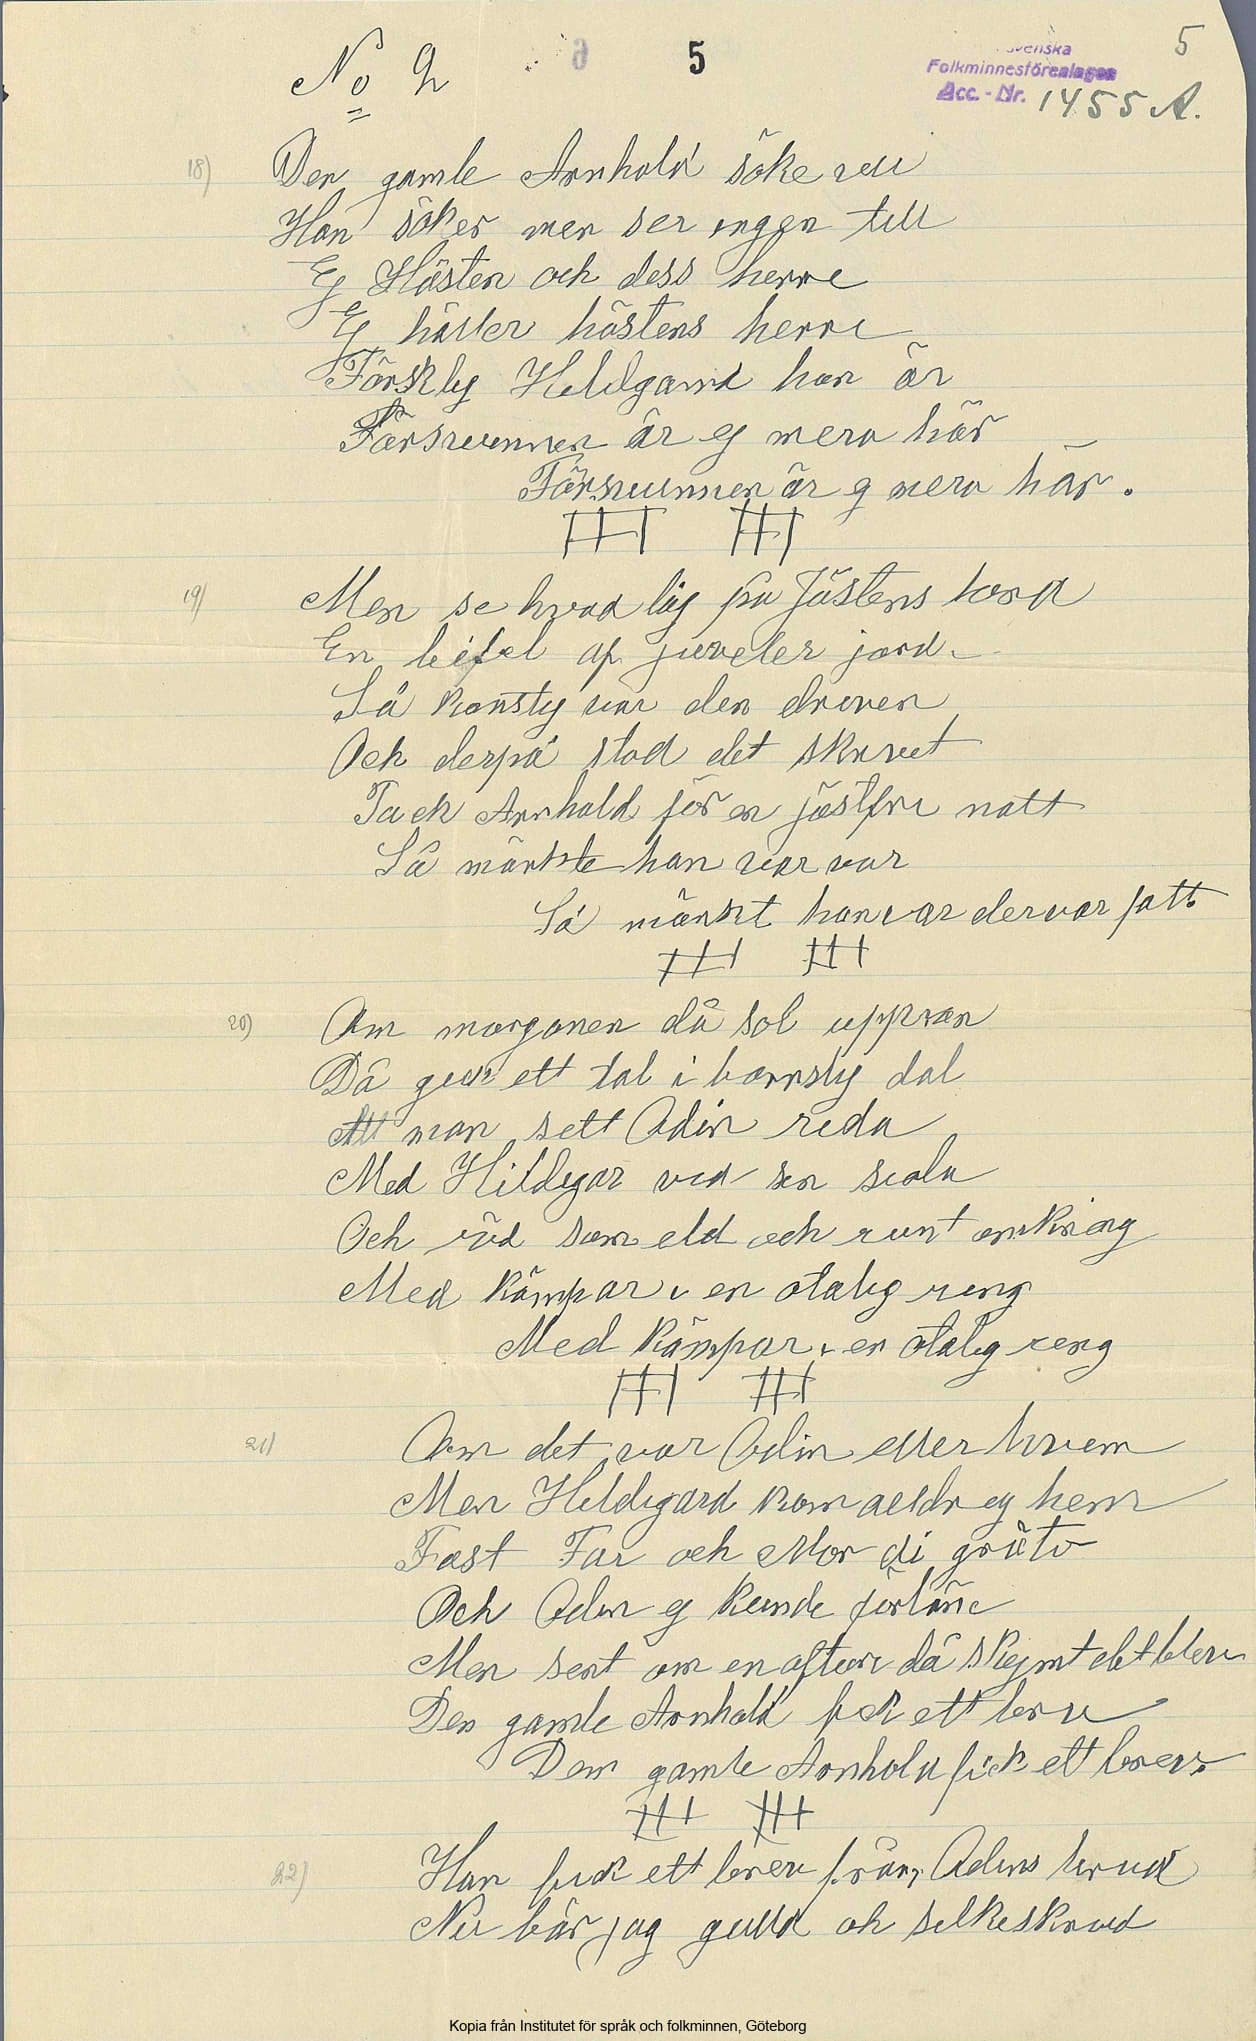 No 2
5
5
Svenska
Folkminnesföreningen
Acc.-Nr. 1455 A.
18) Den gamle Arnhold söke vill
Han söker men ser ingen till
Ej Hästen och dess herre
Ej häller hästens herre
Förskly Hildgard han är
Försvunnen är ej mera här
Försvunnen är ej mera här.
19) Men se hvad låg på fästens bord
En bäfel af juveler jord
Så konstig var den driven
Och derpå stod det skrivet
Tack Arnhold för en fästfri natt
Så märkte han var var
Så märkt han var der var fatt
20) Om morgonen då sol uppran
Då geck ett tal i barnslig dal
Att man sett Odin reda
Med Hildegar ved sen seda
Och röd som eld och runt omkring
Med kämpar i en otalig ring
Med kämpar i en otalig reng
21) Om det var Odin eller hvem
Men Hildegard kom aeldreg hem
Fast Far och Mor di gräto
Och Oden ej kunde förlåne
Men sent om en aftun då skymt det blev
Den gamle Arnhold fick ett brev
Den gamle Arnhold fick ett brev.
22) Han fick ett brev från Odens brud
Nu bär jag gulld ok selkeskrud
Kopia från Institutet för språk och folkminnen, Göteborg